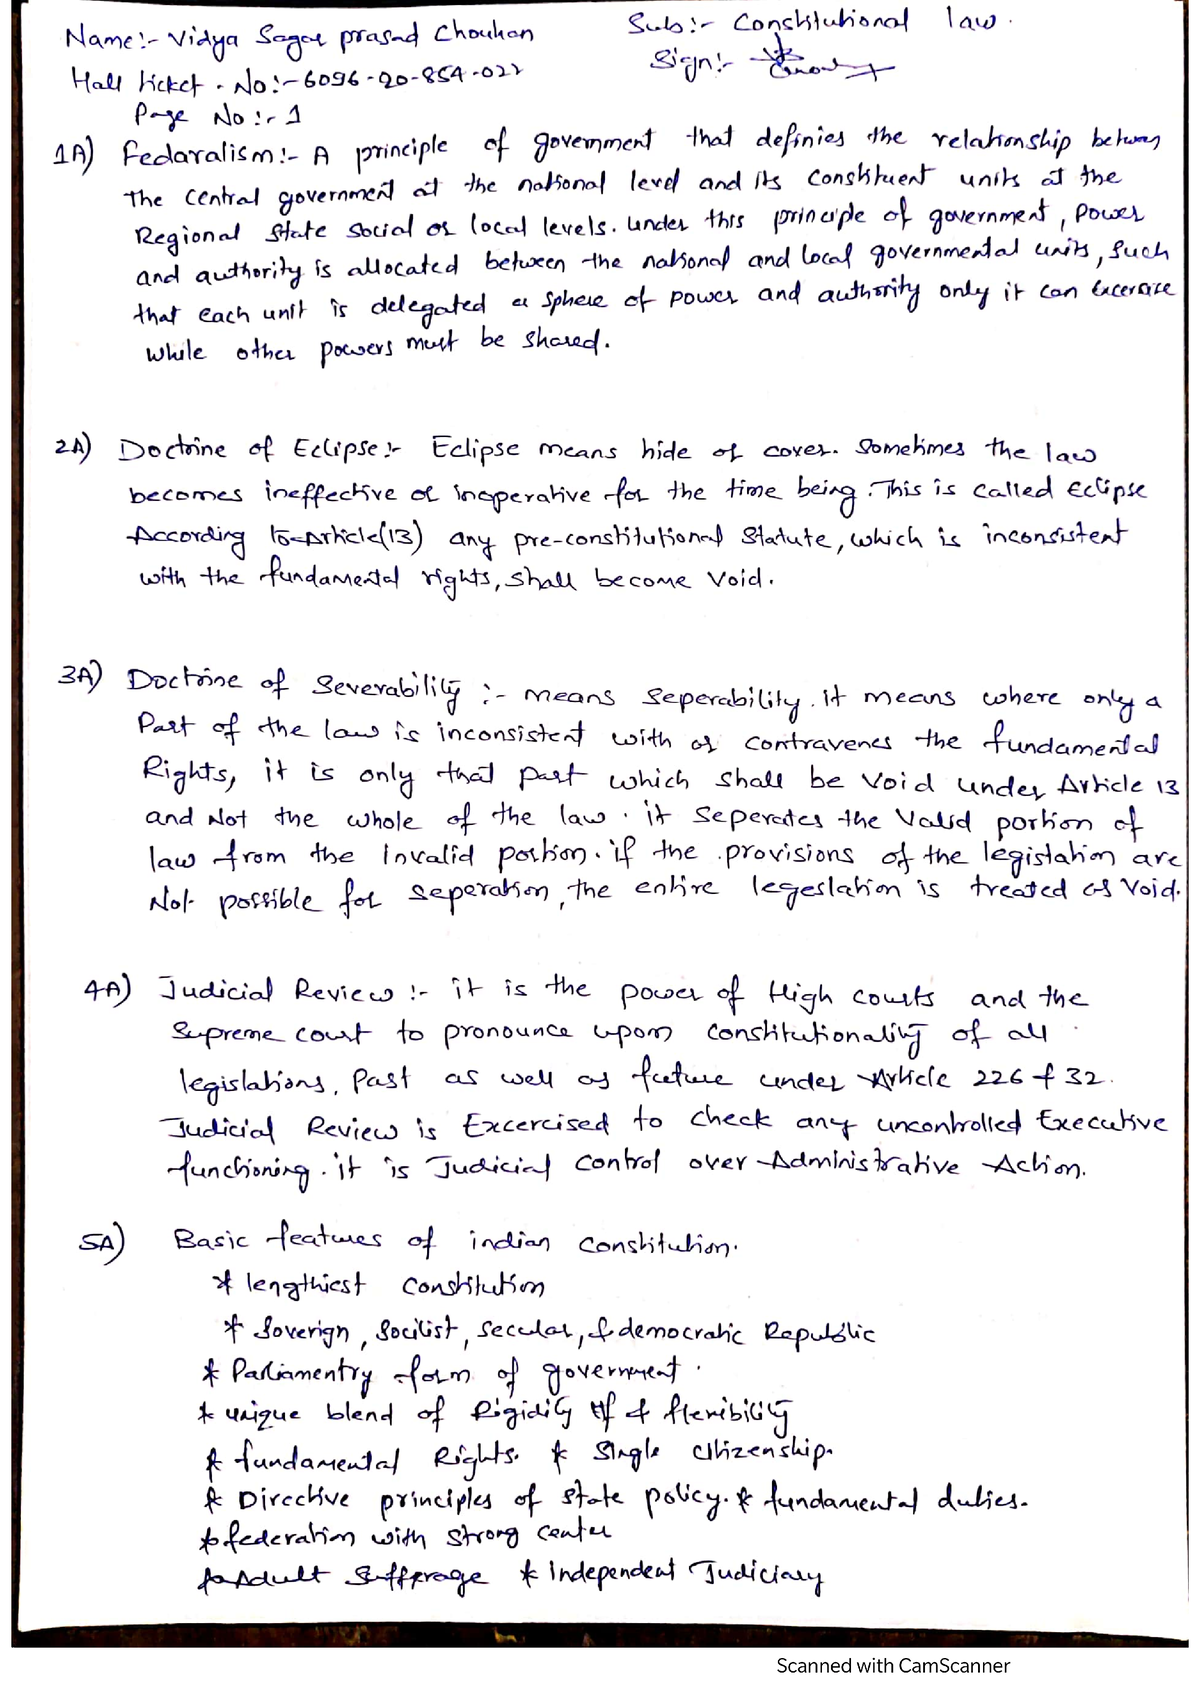 Name:- Vidya Sagar prasad Chouhan
Sub:- Constitutional law.
Hall ticket. No:- 6096-20-854-022
Sign:-
Page No:- 1
1A) Fedaralism:- A principle of government that definies the relationship between
the central government at the national level and its constituent units at the
Regional state social or local levels. under this principle of government, power
and authority is allocated between the national and local governmental units, such
that each unit is delegated a sphere of power and authority only it can excersise
while other powers must be shared.
2A) Doctrine of Eclipse:- Eclipse means hide or cover. Sometimes the law
becomes ineffective or inoperative for the time being. This is called Eclipse
According to Article(13) any pre-constitutional statute, which is inconsistent
with the fundamental rights, shall become void.
3A) Doctrine of Severability :- means seperability. it means where only a
Part of the law is inconsistent with or contravenes the fundamental
Rights, it is only that part which shall be void under Article 13
and Not the whole of the law. it seperates the valid portion of
law from the invalid portion. if the provisions of the legistation are
Not possible for seperation, the entire legeslation is treated as void.
4A) Judicial Review :- it is the power of High courts and the
Supreme court to pronounce upon constitutionality of all
legislations, Past as well as future under Article 226 & 32.
Judicial Review is Excercised to check any uncontrolled Executive
functioning. it is Judicial control over Administrative Action.
5A) Basic features of indian constitution.
* lengthiest constitution
* Soverign, Socilist, secular, & democratic Republic
* Parliamentry form of government.
* unique blend of Rigidity & flexibility
* fundamental Rights. * Single citizenship.
* Directive principles of state policy. * fundamental duties.
* federation with strong center
* Adult Sufferage * independent Judiciary
Scanned with CamScanner